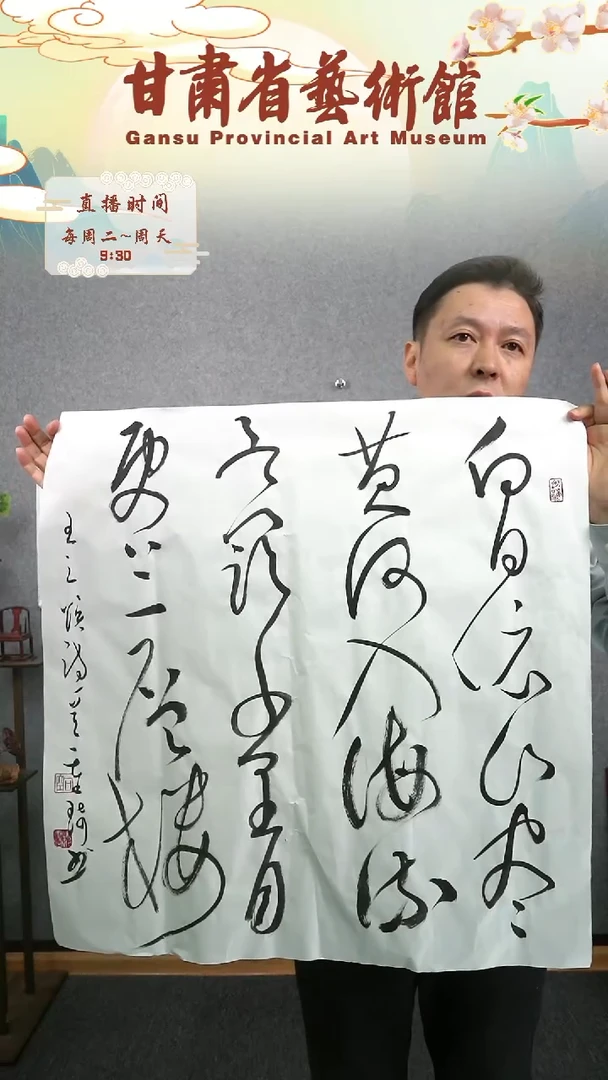 甘肃省藝術館
Gansu Provincial Art Museum
直播时间
每周二~周天
9:30
白日依山尽
黄河入海流
欲窮千里目
更上一层楼
王之涣诗一首